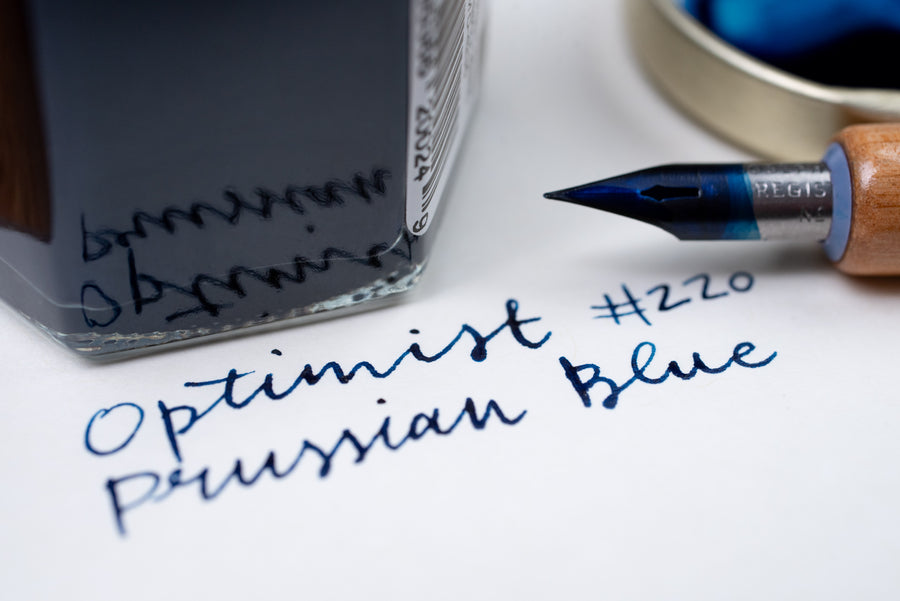 Optimist #220
Prussian Blue
REGIS